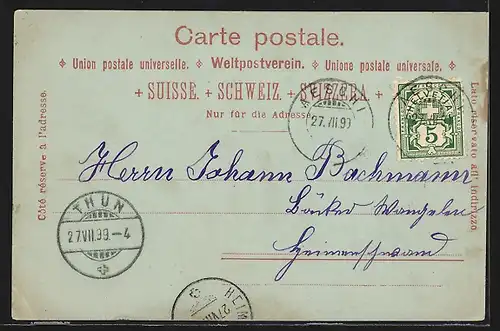 Carte postale.
Union postale universelle. Weltpostverein. Unione postale universale.
+ SUISSE. + SCHWEIZ. + SVIZZERA +
Nur für die Adresse.
Côté réservé à l'adresse.
Lato riservato all' indirizzo.
HELVETIA
5
AESCHI
27.VII.99
Herrn Johann Bachmann
Bäcker Wangelen
Heimenschwand
THUN
27.VII.99.–4
HEIM
27 VII